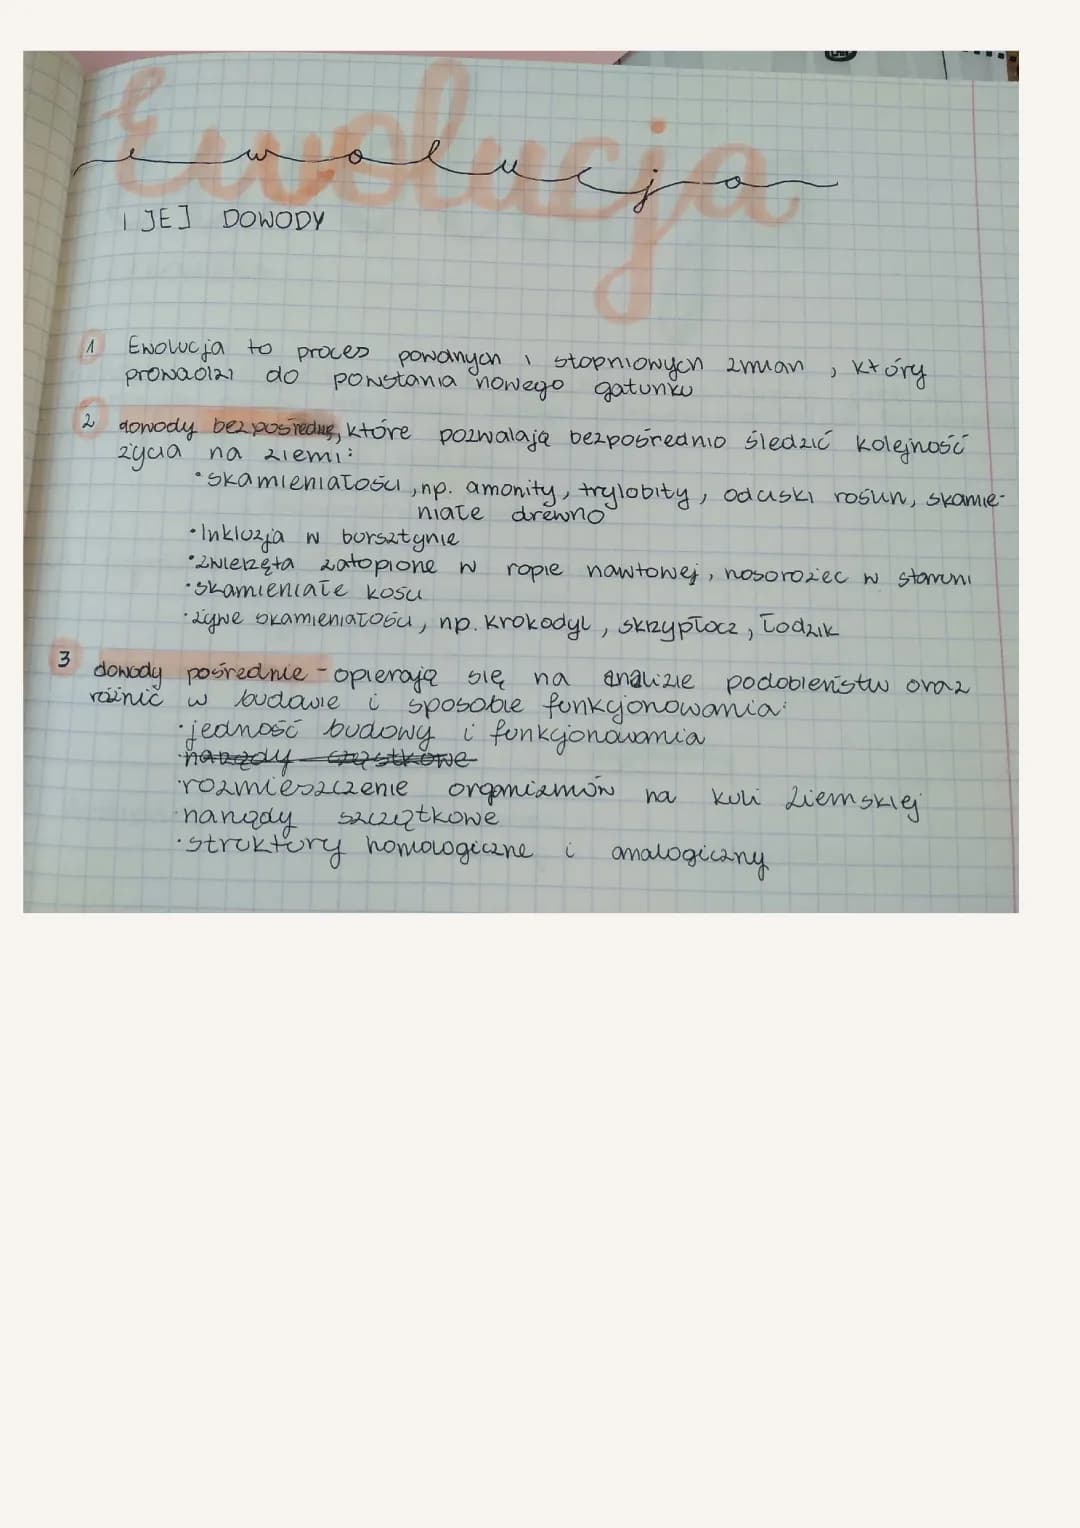 Ewolucja
ewolucja
I JEJ DOWODY
1 Ewolucja to proces powolnych i stopniowych zmian, który
prowadzi do powstania nowego gatunku
2 dowody bezpośrednie, które pozwalają bezpośrednio śledzić kolejność
życia na ziemi:
• skamieniałości, np. amonity, trylobity, odciski roślin, skamie-
niałe drewno
• Inkluzja w bursztynie
• zwierzęta zatopione w ropie nawtowej, nosorożec w staruni
• skamieniałe kości
• żywe skamieniałości, np. krokodyl, skrzypłocz, łodzik
3 dowody pośrednie - opierają się na analizie podobieństw oraz
różnić w budowie i sposobie funkcjonowania:
• jedność budowy i funkcjonowania
• narządy cząstkowe
• rozmieszczenie organizmów na kuli ziemskiej
• narządy szczątkowe
• struktury homologiczne i analogiczny